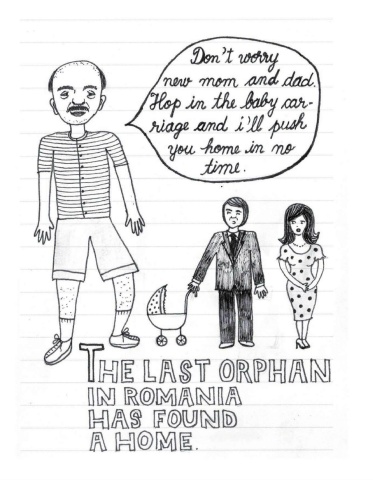 Don't worry
new mom and dad.
Hop in the baby car-
riage and i'll push
you home in no
time.
THE LAST ORPHAN
IN ROMANIA
HAS FOUND
A HOME.